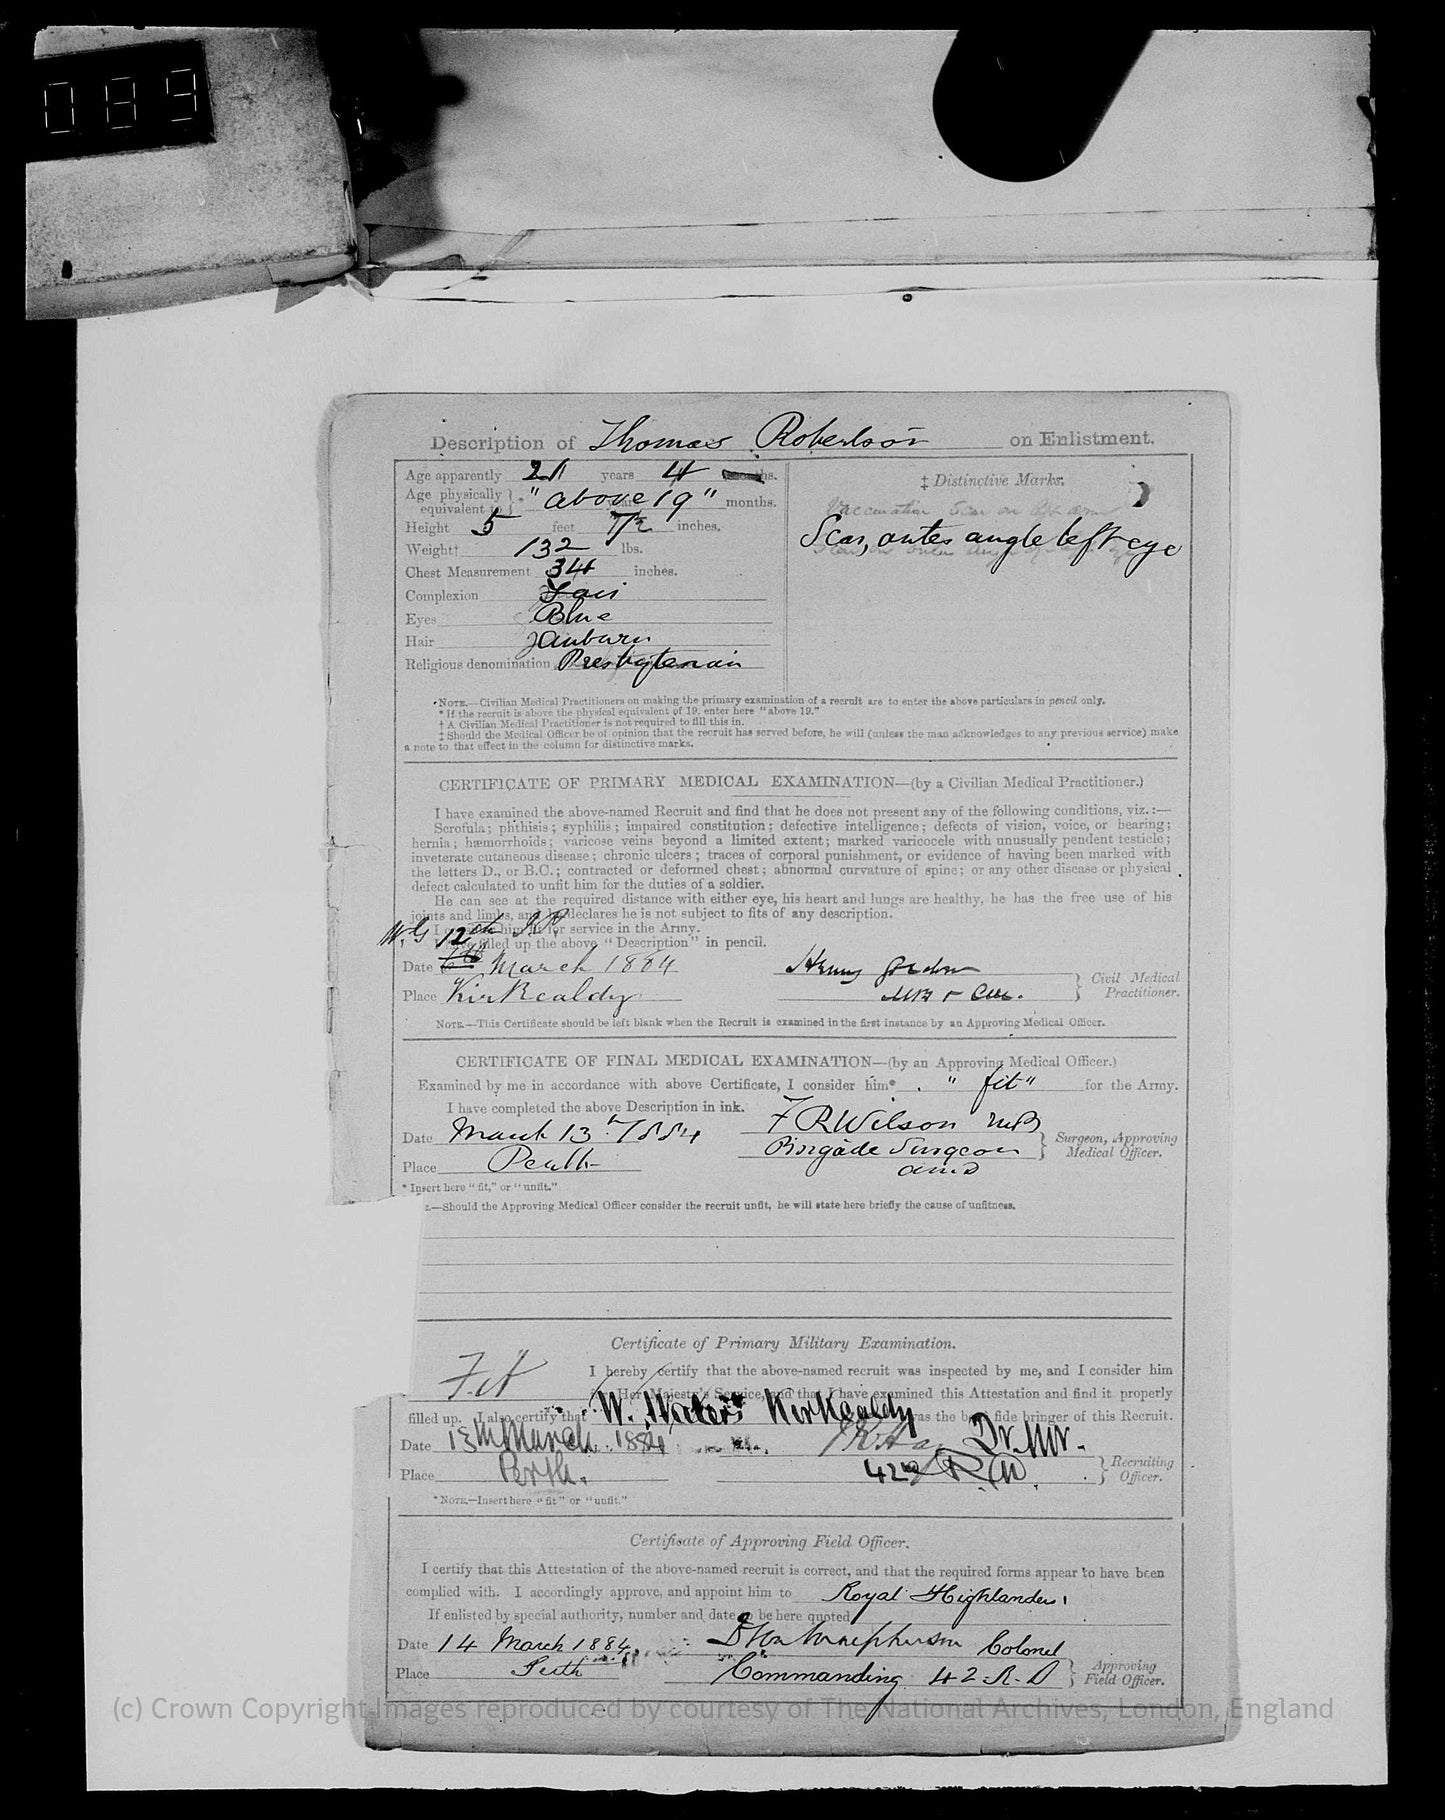 089
Description of Thomas Robertson on Enlistment.
Age apparently 21 years 4 months.
Age physically equivalent to } * " above 19 " months.
Height 5 feet 7½ inches.
Weight† 132 lbs.
Chest Measurement 34 inches.
Complexion Fair
Eyes Blue
Hair Auburn
Religious denomination Presbyterian
‡ Distinctive Marks.
Vaccination Scar on left arm
Scar, outer angle left eye
NOTE.—Civilian Medical Practitioners on making the primary examination of a recruit are to enter the above particulars in pencil only.
* If the recruit is above the physical equivalent of 19, enter here "above 19."
† A Civilian Medical Practitioner is not required to fill this in.
‡ Should the Medical Officer be of opinion that the recruit has served before, he will (unless the man acknowledges to any previous service) make
a note to that effect in the column for distinctive marks.
CERTIFICATE OF PRIMARY MEDICAL EXAMINATION—(by a Civilian Medical Practitioner.)
I have examined the above-named Recruit and find that he does not present any of the following conditions, viz.:—
Scrofula; phthisis; syphilis; impaired constitution; defective intelligence; defects of vision, voice, or hearing;
hernia; hæmorrhoids; varicose veins beyond a limited extent; marked varicocele with unusually pendent testicle;
inveterate cutaneous disease; chronic ulcers; traces of corporal punishment, or evidence of having been marked with
the letters D., or B.C.; contracted or deformed chest; abnormal curvature of spine; or any other disease or physical
defect calculated to unfit him for the duties of a soldier.
He can see at the required distance with either eye, his heart and lungs are healthy, he has the free use of his
joints and limbs, and he declares he is not subject to fits of any description.
I him fit for service in the Army.
W.G 12th
filled up the above "Description" in pencil.
Date March 1884 Henry Gordon
Place Kirkcaldy MB & CM. } Civil Medical Practitioner.
NOTE.—This Certificate should be left blank when the Recruit is examined in the first instance by an Approving Medical Officer.
CERTIFICATE OF FINAL MEDICAL EXAMINATION—(by an Approving Medical Officer.)
Examined by me in accordance with above Certificate, I consider him* " fit " for the Army.
I have completed the above Description in ink.
Date March 13th 1884 F R Wilson MB
Place Perth Brigade Surgeon AMD } Surgeon, Approving Medical Officer.
* Insert here "fit," or "unfit."
.—Should the Approving Medical Officer consider the recruit unfit, he will state here briefly the cause of unfitness.
Certificate of Primary Military Examination.
I hereby certify that the above-named recruit was inspected by me, and I consider him
Fit for Her Majesty's Service, and that I have examined this Attestation and find it properly
filled up. I also certify that W. Waters Kirkcaldy was the bonâ fide bringer of this Recruit.
Date 13th March 1884
Place Perth. 42nd } Recruiting Officer.
*NOTE.—Insert here "fit" or "unfit."
Certificate of Approving Field Officer.
I certify that this Attestation of the above-named recruit is correct, and that the required forms appear to have been
complied with. I accordingly approve, and appoint him to Royal Highlanders
If enlisted by special authority, number and date to be here quoted
Date 14 March 1884 Macpherson Colonel
Place Perth Commanding 42 R. D } Approving Field Officer.
(c) Crown Copyright Images reproduced by courtesy of The National Archives, London, England